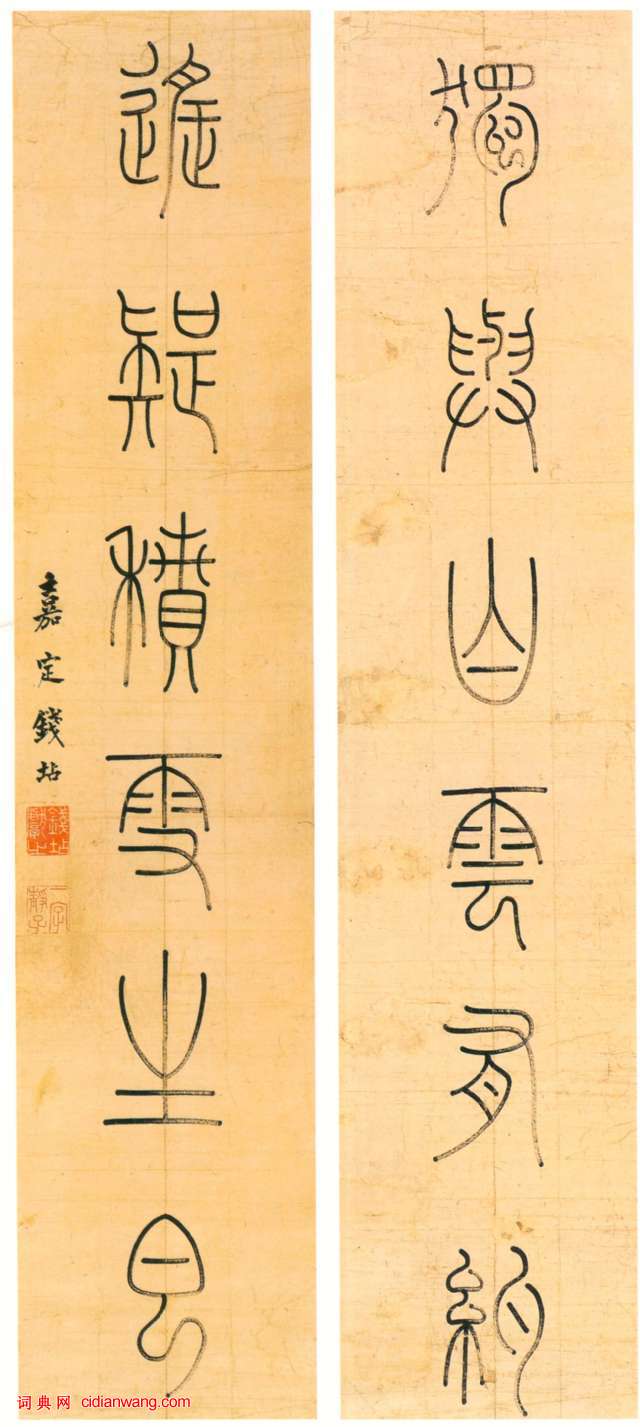 獨與山雲有約
遙疑積雪生
嘉定錢坫
錢坫獻之
词典网 cidianwang.com